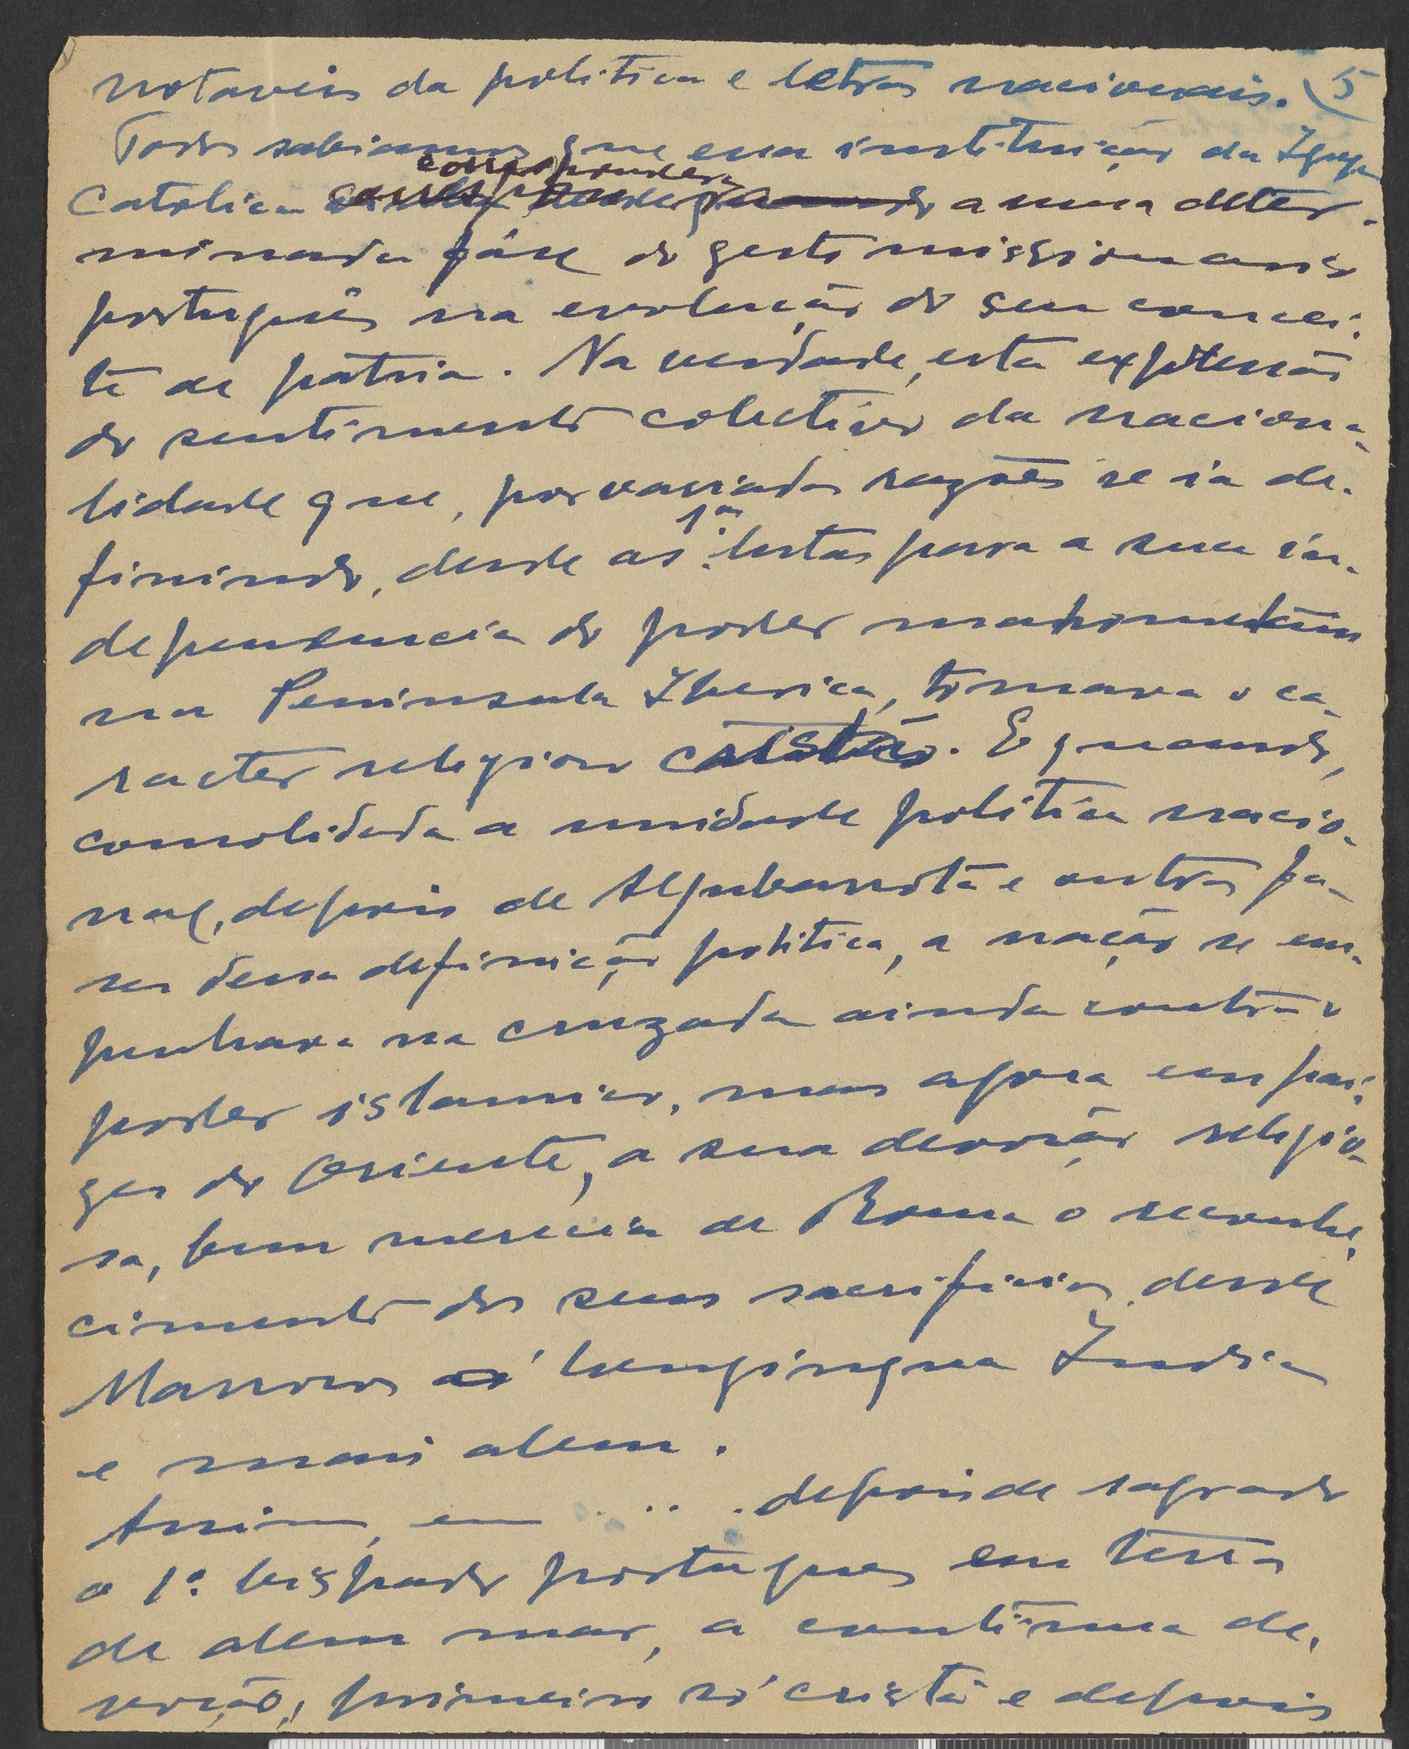 notaveis da politica e letras nacionais. 5
Todos sabiamos que essa instituição da Igreja
Catolica correspondera a uma deter-
minada fáse do gesto missionario
português na evolução do seu concei-
to de patria. Na verdade, esta expressão
do sentimento colectivo da naciona-
lidade que, por variadas razões se ia de-
finindo, desde as 1as lutas para a sua in-
dependencia do poder mahometano
na Peninsula Iberica, tomava o ca-
racter religioso cristão. E quando,
consolidada a unidade politica nacio-
nal, depois de Aljubarrota e outras fa-
ses dessa definição politica, a nação se em-
penhava na cruzada ainda contra o
poder islamico, mas agora em parai-
zes do Oriente, a sua devoção religio-
sa, bem merecia de Roma o reconhe-
cimento dos seus sacrificios desde
Marrocos á longinqua India
e mais alem.
Assim, em . . . . depois de sagrado
o 1º bispado portugues em terras
de alem mar, a continua de-
voção, primeiro só cristã e depois